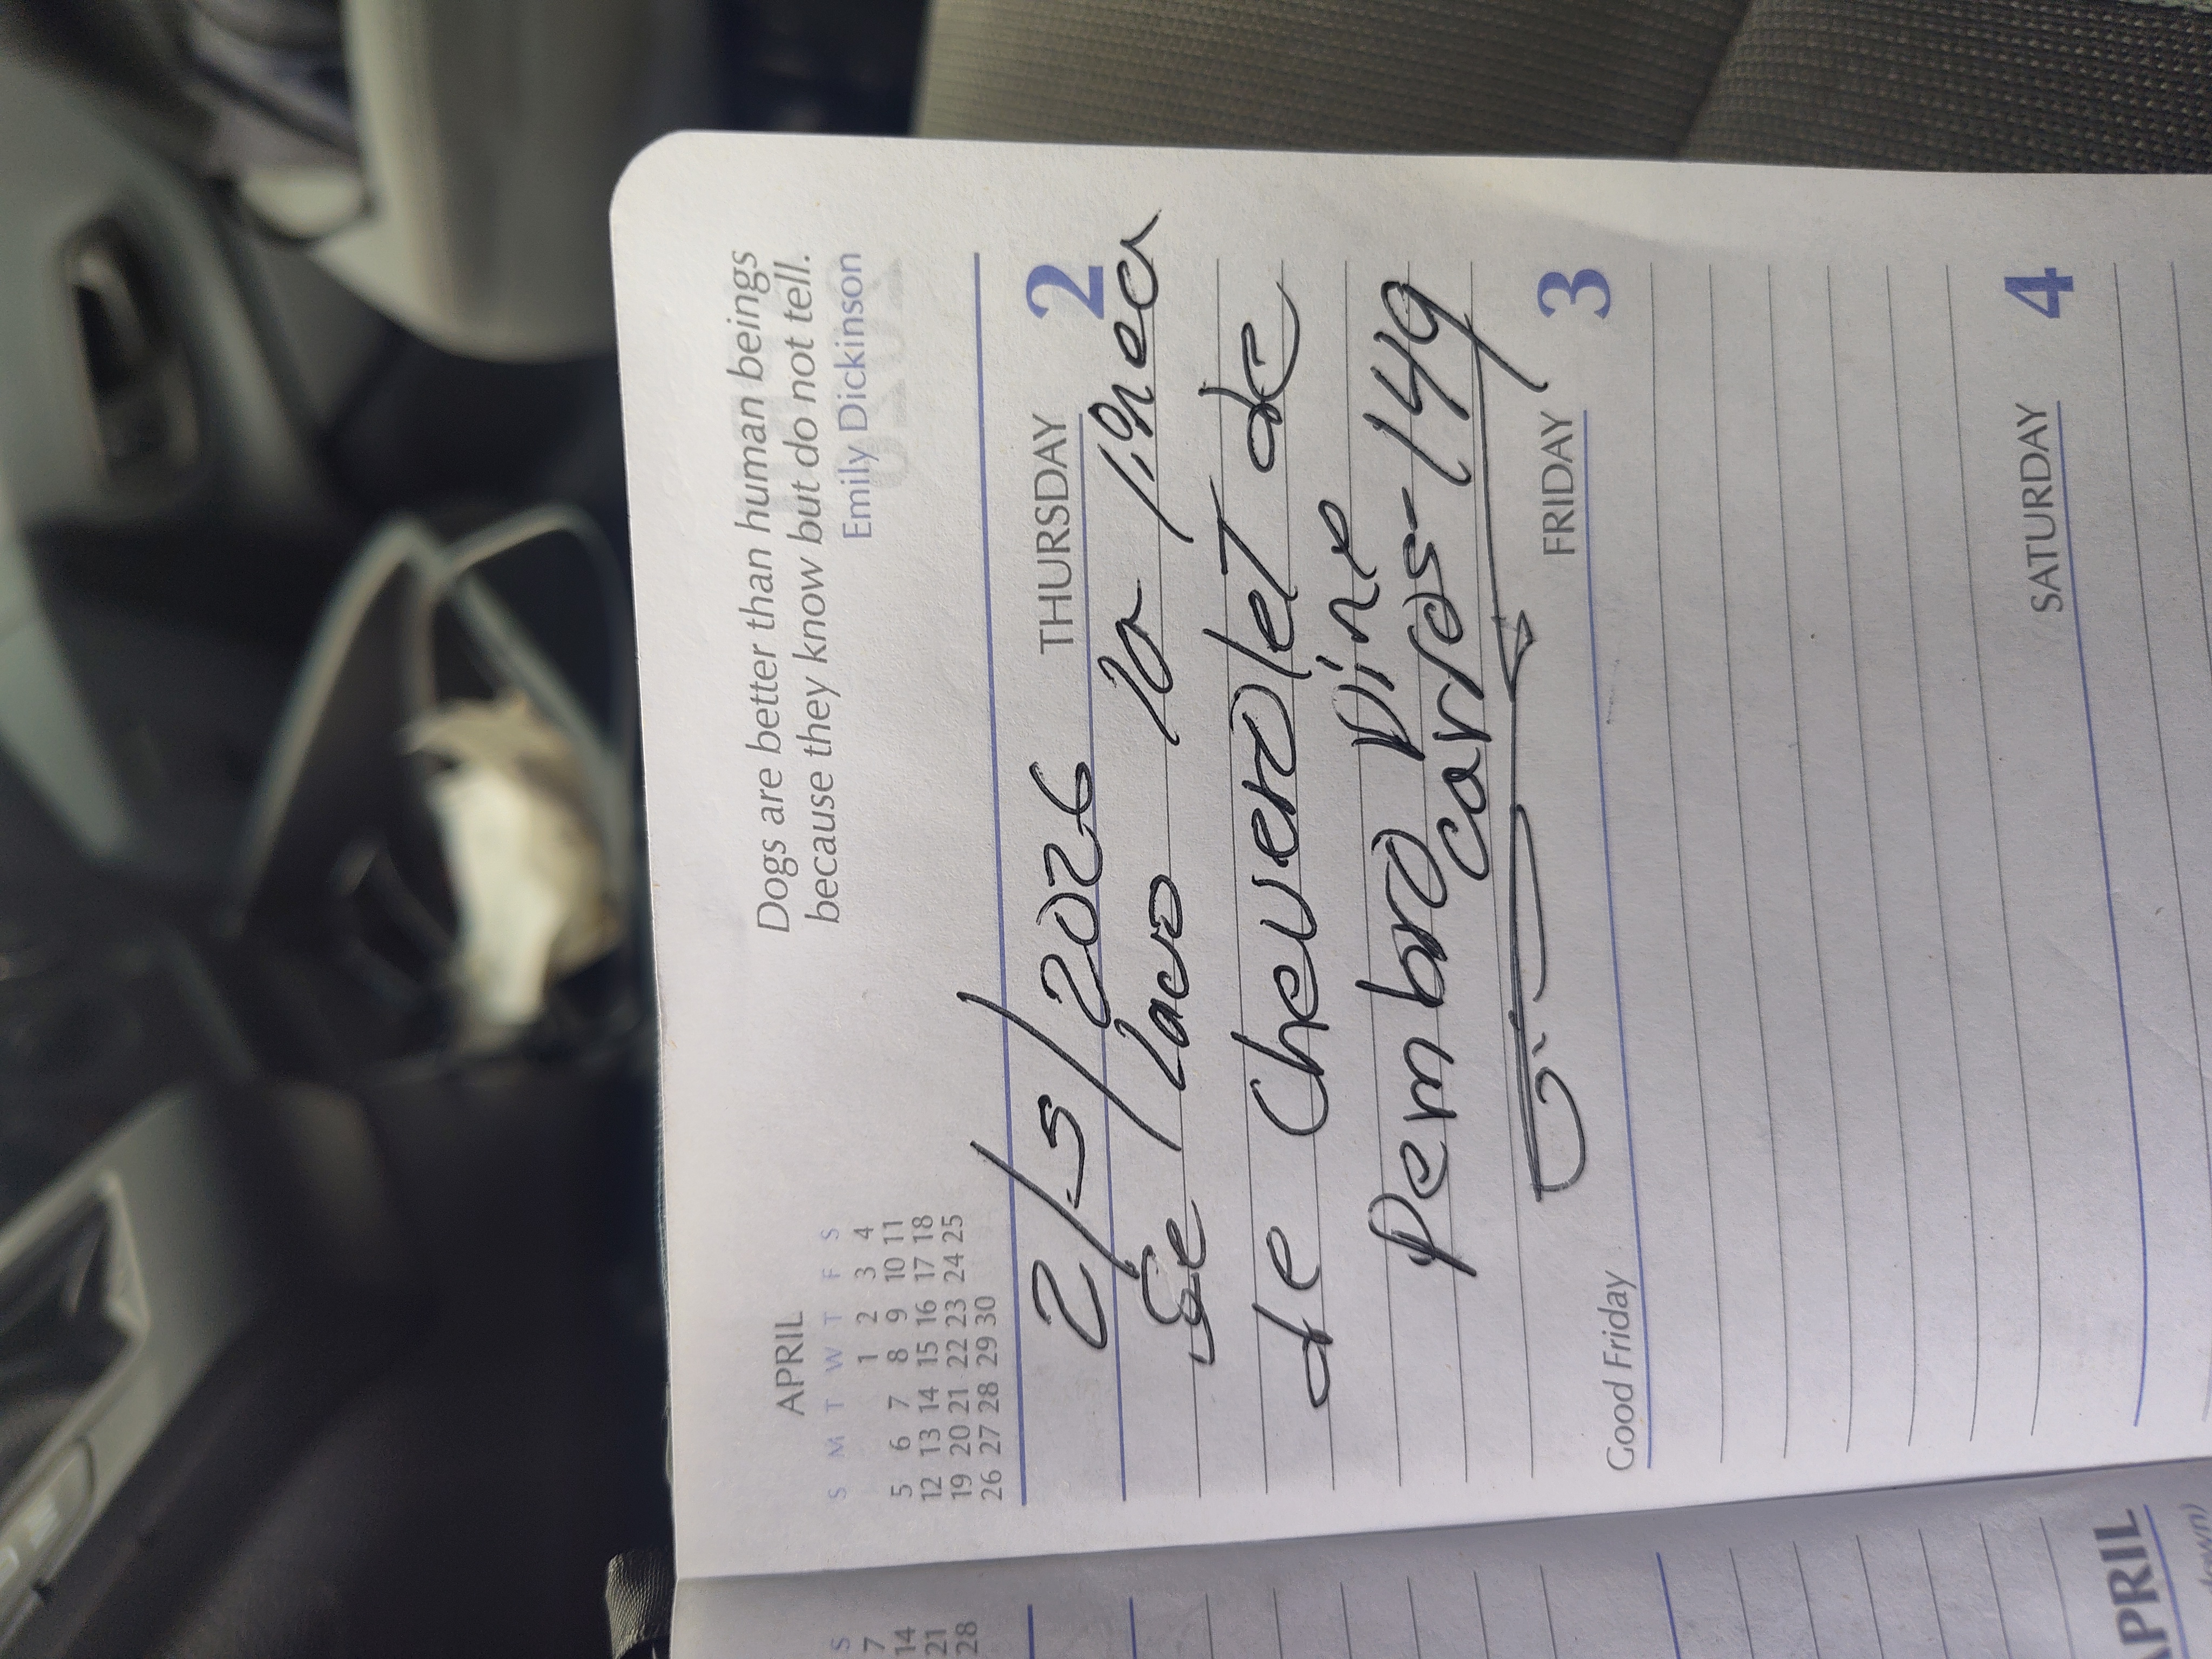 APRIL
S M T W T F S
1 2 3 4
5 6 7 8 9 10 11
12 13 14 15 16 17 18
19 20 21 22 23 24 25
26 27 28 29 30
Dogs are better than human beings
because they know but do not tell.
Emily Dickinson
THURSDAY 2
2/5/2026
Se lavo la linea
de Cheverolet de
Pembro Pine
carros-149
Good Friday FRIDAY 3
SATURDAY 4
S
7
14
21
28
APRIL